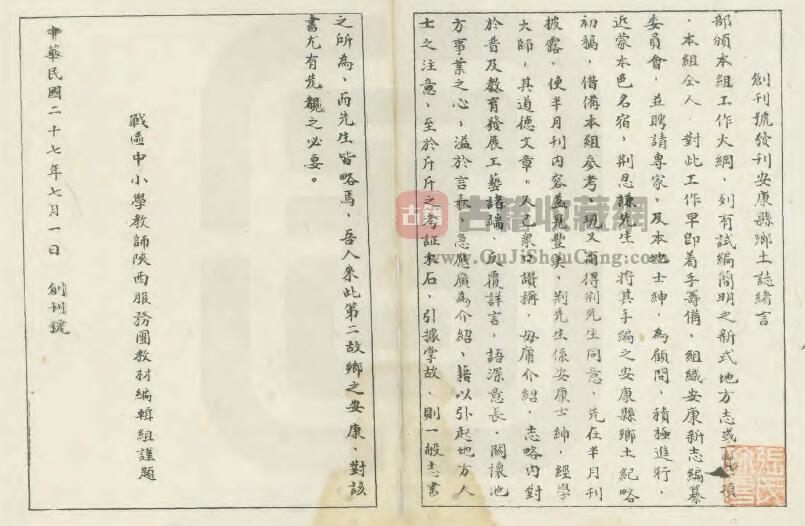 創刊號發刊安康縣鄉土誌緒言
部頒本組工作大綱，列有試編簡明之新式地方志或
，本組仝人，對此工作早即着手籌備，組織安康新志編纂
委員會，並聘請專家，及本地士紳，為顧問，積極進行，
近蒙本邑名宿，荆思謙先生，將其手編之安康縣鄉土紀略
初稿，借備本組參考，現又商得荆先生同意，先在半月刊
披露，使半月刊內容益見豐美，荆先生係安康士紳，經學
大師，其道德文章，久已衆口讚稱，毋庸介紹，志略內對
於普及教育發展工藝諸端，反覆詳言，語深意長，關懷地
方事業之心，溢於言表，急應廣為介紹，藉以引起地方人
士之注意，至於斤斤之考証求石，引據掌故，則一般志書
之所為，而先生皆略焉，吾人來此第二故鄉之安康，對該
書尤有先覩之必要。
戰區中小學教師陝西服務團教材編輯組謹題
中華民國二十七年七月一日 創刊號
古籍
古籍收藏网
www.GuJiShouCang.com